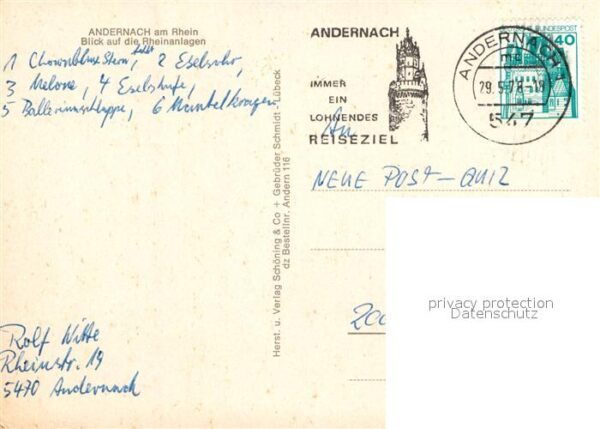 ANDERNACH am Rhein
Blick auf die Rheinanlagen
2 Eselsohr,
3 Melone, 4 Eselstufe,
5 Ballerinaschläppe, 6 Mantelkragen
Rolf Witte
Rheinstr. 19
5470 Andernach
Herst. u. Verlag Schöning & Co + Gebrüder Schmidt · Lübeck
dz Bestellnr. Andern 116
ANDERNACH
IMMER
EIN
LOHNENDES
REISEZIEL
ANDERNACH 1
29.5.78-18
547
BUNDESPOST
40
An
NEUE POST-QUIZ
200
privacy protection
Datenschutz